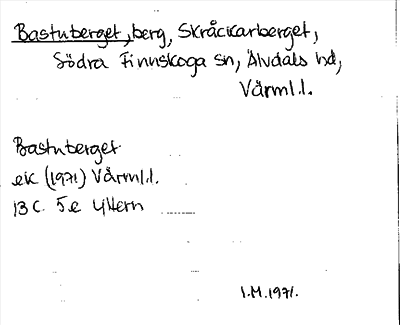 Bastuberget, berg, Skråckarberget,
Södra Finnskoga sn, Älvdals hd,
Värml.l.
Bastuberget
ek (1971) Värml.l.
13 C. 5e Yttern
I.M. 1971.